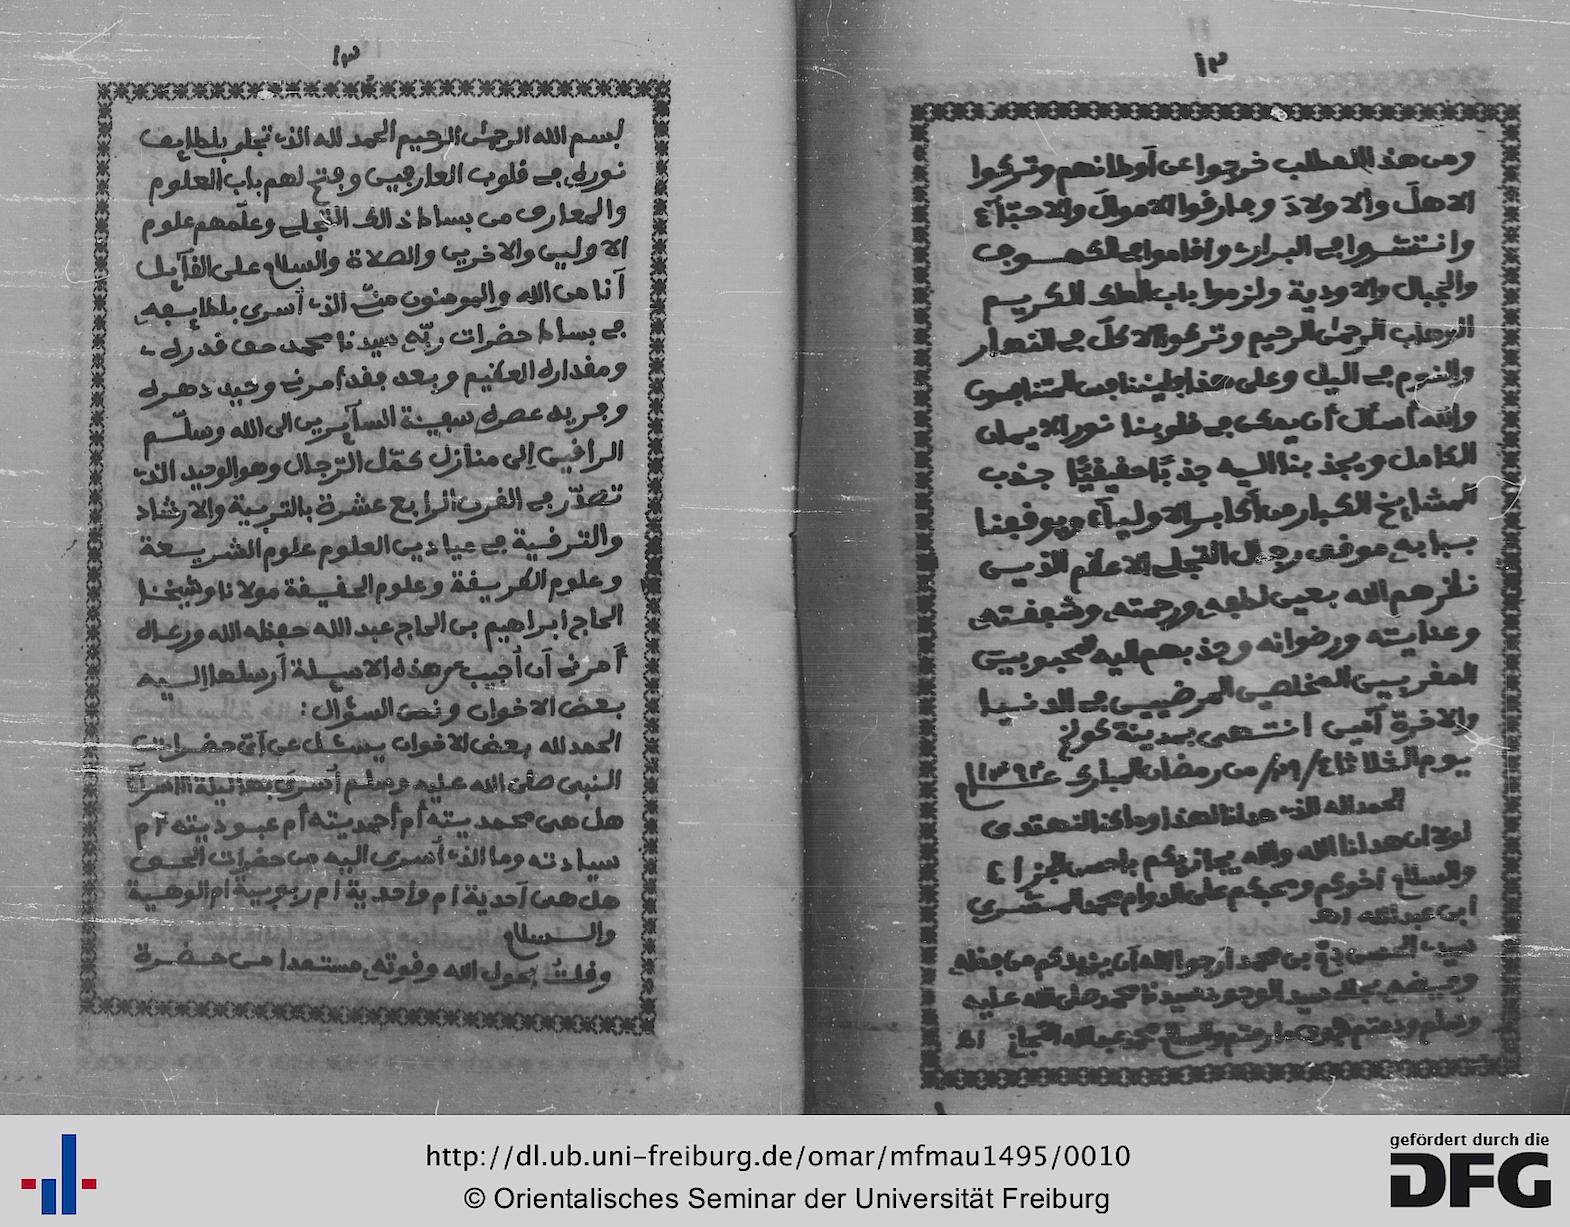 ١٢
ومن هذا المطلب خرجوا عن أوطانهم وتركوا
الاهلَ والاولادَ وفارقوا الاموالَ والاحبّآء
وانتشروا في البراري وأقاموا في الكهوف
والجبال والاودية ولزموا باب الملك الكريم
الوهاب الرحمن الرحيم وتركوا الاكل في النهار
والنوم في اليل وعلى هذا فليتنافس المتنافسون
والله أسأل أن يمكن في قلوبنا نور الايمان
الكامل ويجذبنا اليه جذبًا حقيقيًّا جذب
المشايخ الكبار من أكابر الاوليآء ويوفقنا
رجال التجلي الاعظم الذين
نظرهم الله بعين لطفه ورحمته وشفقته
وعنايته ورضوانه وجذبهم اليه محبوبين
المقربين المخلصين المرضيين في الدنيا
والاخرة آمين انتهى بمدينة كولخ
يوم الثلاثاء من رمضان المبارك
الحمد لله الذي هدانا لهذا وما كنا لنهتدى
لولا ان هدانا الله والله يجازيكم باحسن الجزاء
والسلام أخوكم ومحبكم على الدوام محمد
ابن عبد الله اهـ
سيدي الحسن بن محمد أرجوا الله أن يزيدكم من فضله
سيد الوجود سيدنا محمد صلى الله عليه
وسلم ودمتم والسلام محمد عبد الله اهـ
١٣
بسم الله الرحمن الرحيم الحمد لله الذي تجلى بلطايف
نوره في قلوب العارفين وفتح لهم باب العلوم
والمعارف من بساط ذالك التجلي وعلّمهم علوم
الاولين والاخرين والصلاة والسلام على القآيل
أنا من الله والمومنون منّي الذي أسرى بلطايفه
في بساط حضرات ربّه سيدنا محمد حق قدره
ومقداره العظيم وبعد فقد أمرني وحيد دهره
وفريد عصره سفينة السآيرين الى الله وسلّم
الراقين إلى منازل كمّل الرجال وهو الوحيد الذي
تصدّر في القرن الرابع عشرة بالتربية والارشاد
والترقية في ميادين العلوم علوم الشريعة
وعلوم الطريقة وعلوم الحقيقة مولانا وشيخنا
الحاج ابراهيم بن الحاج عبد الله حفظه الله ورعاه
أمرني أن أجيب عن هذه الاسيلة أرسلها اليه
بعض الاخوان ونص السؤال :
الحمد لله بعض الاخوان يسئل عن أيّ حضرات
النبى صلى الله عليه وسلم أسرى بها ليلة الاسرآء
هل هى محمديته أم أحمديته أم عبوديته أم
سيادته وما الذي أسرى اليه من حضرات الحق
هل هى أحدية ام واحدية ام ربوبية ام الوهية
والسلام
وقلتُ بحول الله وقوته مستمدا من حضرة
http://dl.ub.uni-freiburg.de/omar/mfmau1495/0010
© Orientalisches Seminar der Universität Freiburg
gefördert durch die
DFG